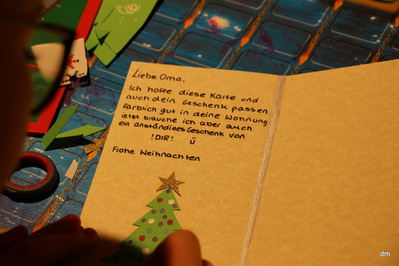 Liebe Oma,
Ich hoffe diese Karte und
auch dein Geschenk passen
farblich gut in deine Wohnung
jetzt brauche ich aber auch
ein anständiges Geschenk von
!DIR! Ü
Frohe Weihnachten
dm